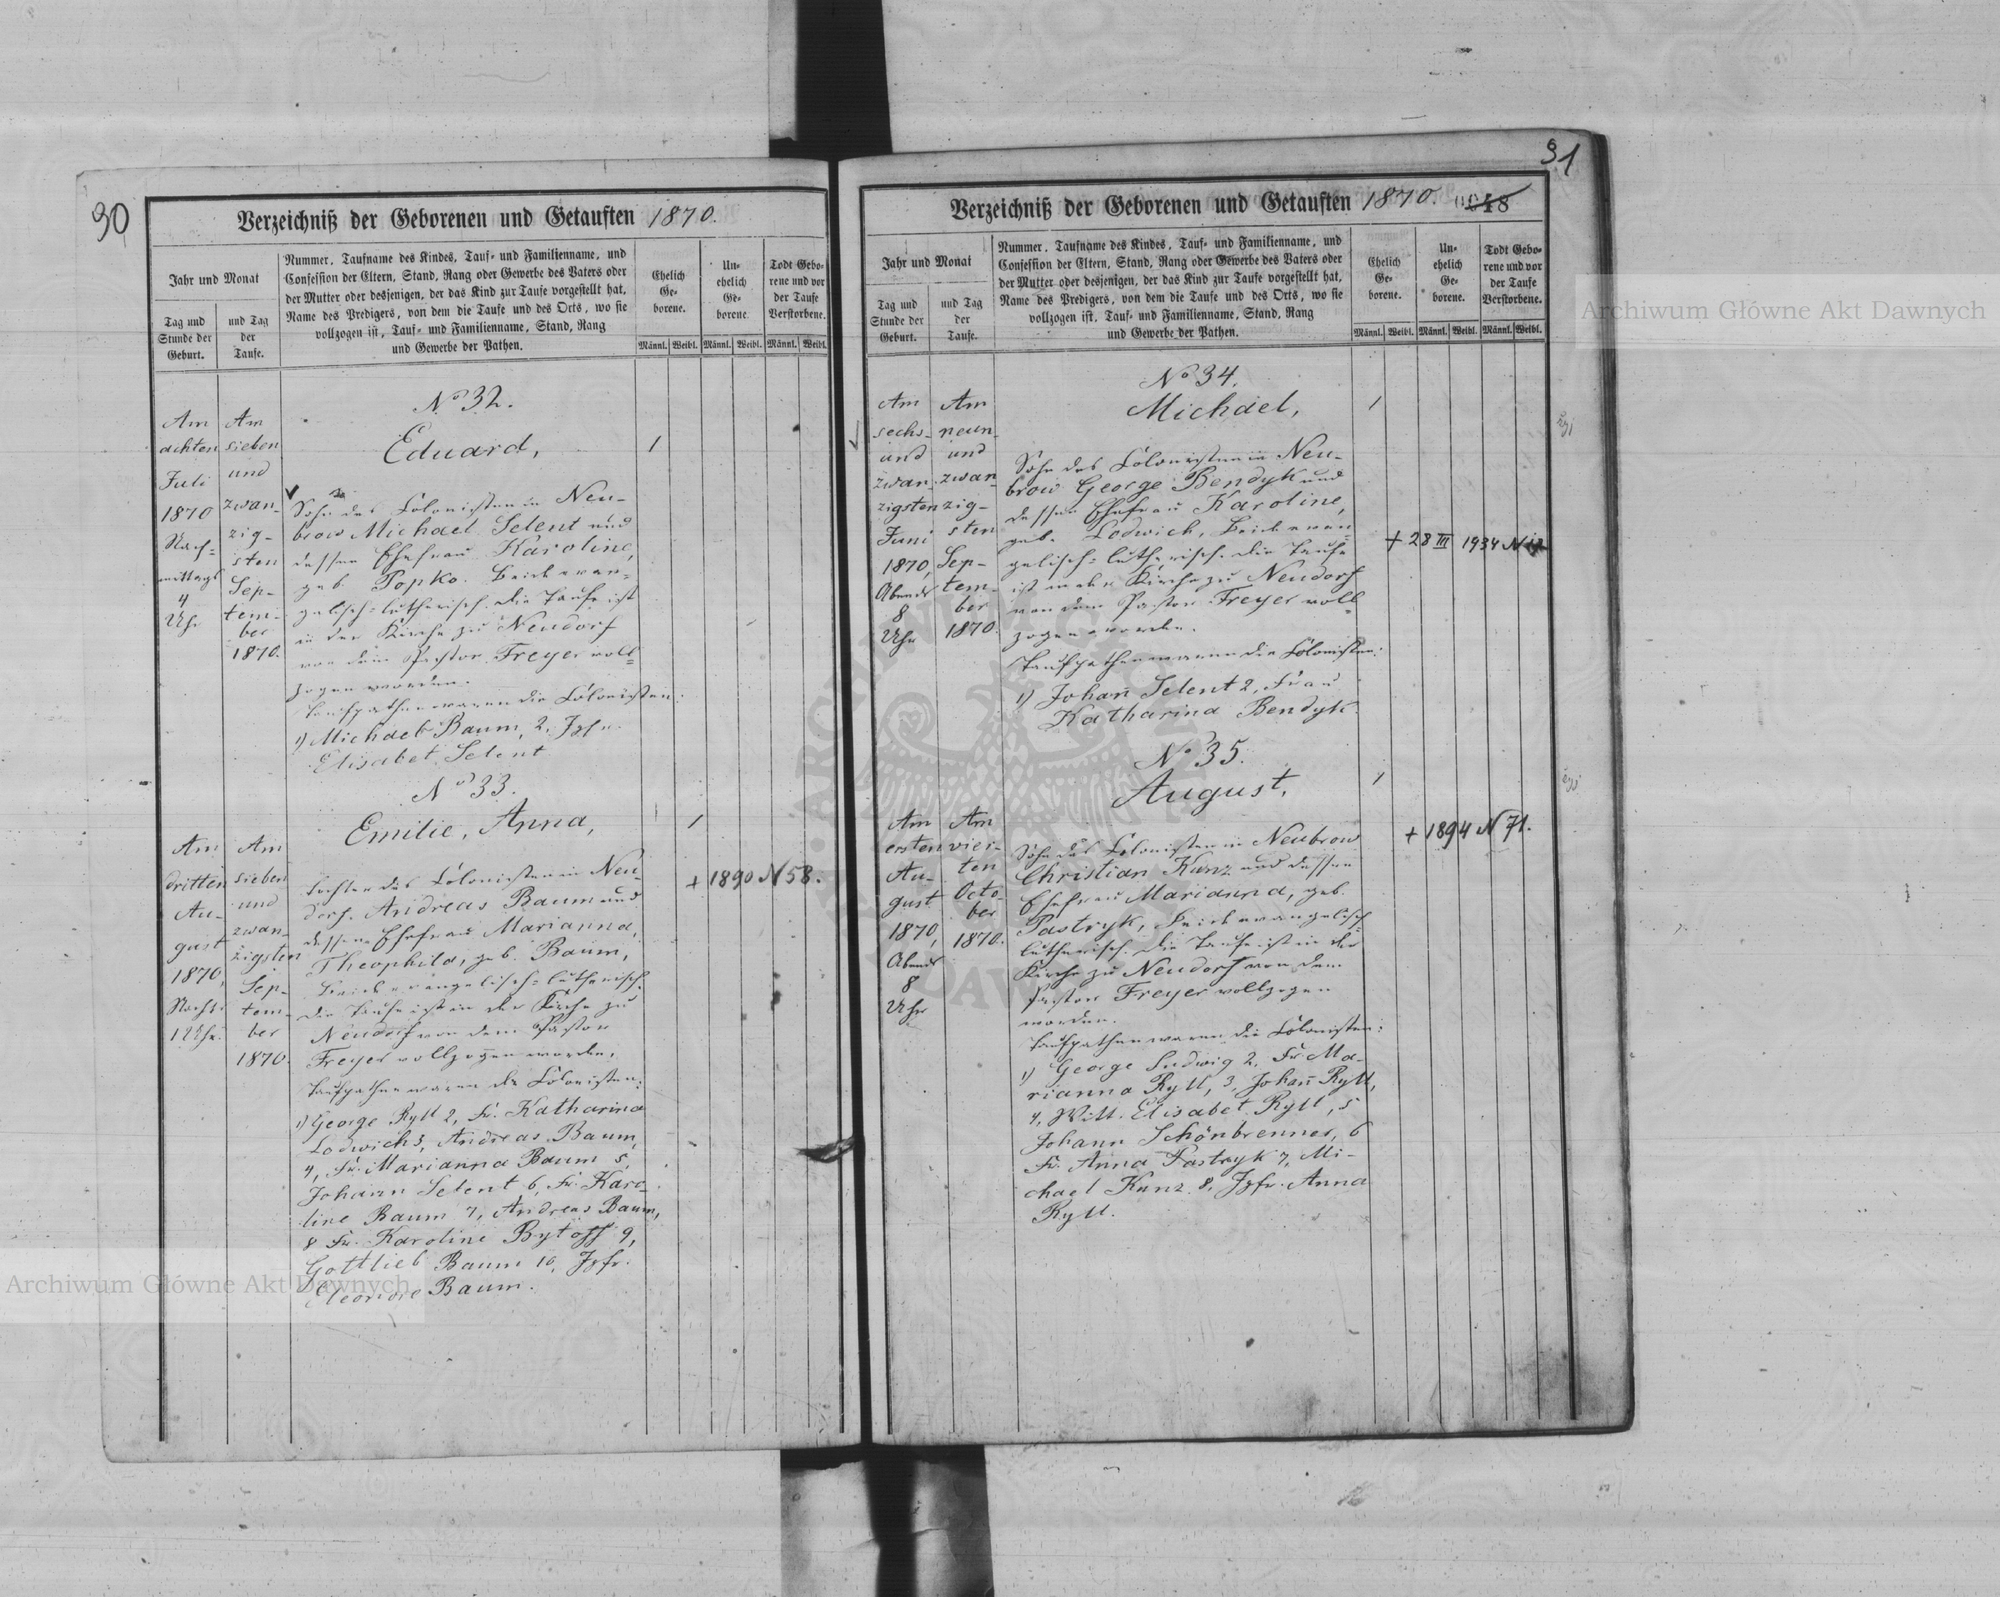 90
Verzeichniß der Geborenen und Getauften 1870.
Jahr und Monat
Tag und
Stunde der
Geburt.
und Tag
der
Taufe.
Nummer, Taufname des Kindes, Tauf- und Familienname, und
Confession der Eltern, Stand, Rang oder Gewerbe des Vaters oder
der Mutter oder desjenigen, der das Kind zur Taufe vorgestellt hat,
Name des Predigers, von dem die Taufe und des Orts, wo sie
vollzogen ist, Tauf- und Familienname, Stand, Rang
und Gewerbe der Pathen.
Ehelich
Ge-
borene.
Un-
ehelich
Ge-
borene.
Todt Gebo-
rene und vor
der Taufe
Verstorbene.
Männl. Weibl. Männl. Weibl. Männl. Weibl.
Am
achten
Juli
1870
Nach-
mittags
4
Uhr
Am
sieben
und
zwan-
zig-
sten
Sep-
tem-
ber
1870.
No 32.
Eduard,
1
Sohn des Colonisten in Neu-
brow Michael Selent und
dessen Ehefrau Karoline,
geb. Popko. Beide evan-
gelisch-lutherisch. Die Taufe ist
in der Kirche zu Neudorf
von dem Pastor Freyer voll-
zogen worden.
Taufpathen waren die Colonisten:
1) Michael Baum, 2, Jgfr.
Elisabet Selent
Am
dritten
Au-
gust
1870,
Nachts
1 Uhr.
Am
sieben
und
zwan-
zigsten
Sep-
tem-
ber
1870.
No 33.
Emilie, Anna,
1
+ 1890 N 58.
Tochter des Colonisten in Neu-
dorf Andreas Baum und
dessen Ehefrau Marianna,
Theophila, geb. Baum,
Beide evangelisch-lutherisch.
Die Taufe ist in der Kirche zu
Neudorf von dem Pastor
Freyer vollzogen worden.
Taufpathen waren die Colonisten:
1) George Ryll 2, Fr. Katharina
Lodwich 3, Andreas Baum,
4, Fr. Marianna Baum 5,
Johann Selent 6, Fr. Karo-
line Baum 7, Andreas Baum,
8 Fr. Karoline Bytoff 9,
Gottlieb Baum 10, Jgfr.
Eleonore Baum.
91
Verzeichniß der Geborenen und Getauften 1870.
Jahr und Monat
Tag und
Stunde der
Geburt.
und Tag
der
Taufe.
Nummer, Taufname des Kindes, Tauf- und Familienname, und
Confession der Eltern, Stand, Rang oder Gewerbe des Vaters oder
der Mutter oder desjenigen, der das Kind zur Taufe vorgestellt hat,
Name des Predigers, von dem die Taufe und des Orts, wo sie
vollzogen ist, Tauf- und Familienname, Stand, Rang
und Gewerbe der Pathen.
Ehelich
Ge-
borene.
Un-
ehelich
Ge-
borene.
Todt Gebo-
rene und vor
der Taufe
Verstorbene.
Männl. Weibl. Männl. Weibl. Männl. Weibl.
Am
sechs-
und
zwan-
zigsten
Juni
1870,
Abends
8
Uhr
Am
neun
und
zwan-
zig-
sten
Sep-
tem-
ber
1870.
No 34.
Michael,
1
+ 28 III 1934 N
Sohn des Colonisten in Neu-
brow George Bendyk und
dessen Ehefrau Karoline,
geb. Lodwich, Beide evan-
gelisch-lutherisch. Die Taufe
ist in der Kirche zu Neudorf
von dem Pastor Freyer voll-
zogen worden.
Taufpathen waren die Colonisten:
1) Johañ Selent 2, Frau
Katharina Bendyk
Am
ersten
Au-
gust
1870,
Abends
8
Uhr
Am
vier-
ten
Octo-
ber
1870.
No 35.
August,
1
+ 1894 N 71.
Sohn des Colonisten in Neubrow
Christian Kunz und dessen
Ehefrau Marianna, geb.
Pastryk, Beide evangelisch-
lutherisch. Die Taufe ist in der
Kirche zu Neudorf von dem
Pastor Freyer vollzogen
worden.
Taufpathen waren die Colonisten:
1) George Ludwig 2, Fr. Ma-
rianna Ryll, 3, Johañ Ryll,
4, Witt. Elisabet Ryll, 5
Johann Schönbrenner, 6
Fr. Anna Pastryk 7, Mi-
chael Kunz 8, Jgfr. Anna
Ryll.
Archiwum Główne Akt Dawnych
Archiwum Główne Akt Dawnych